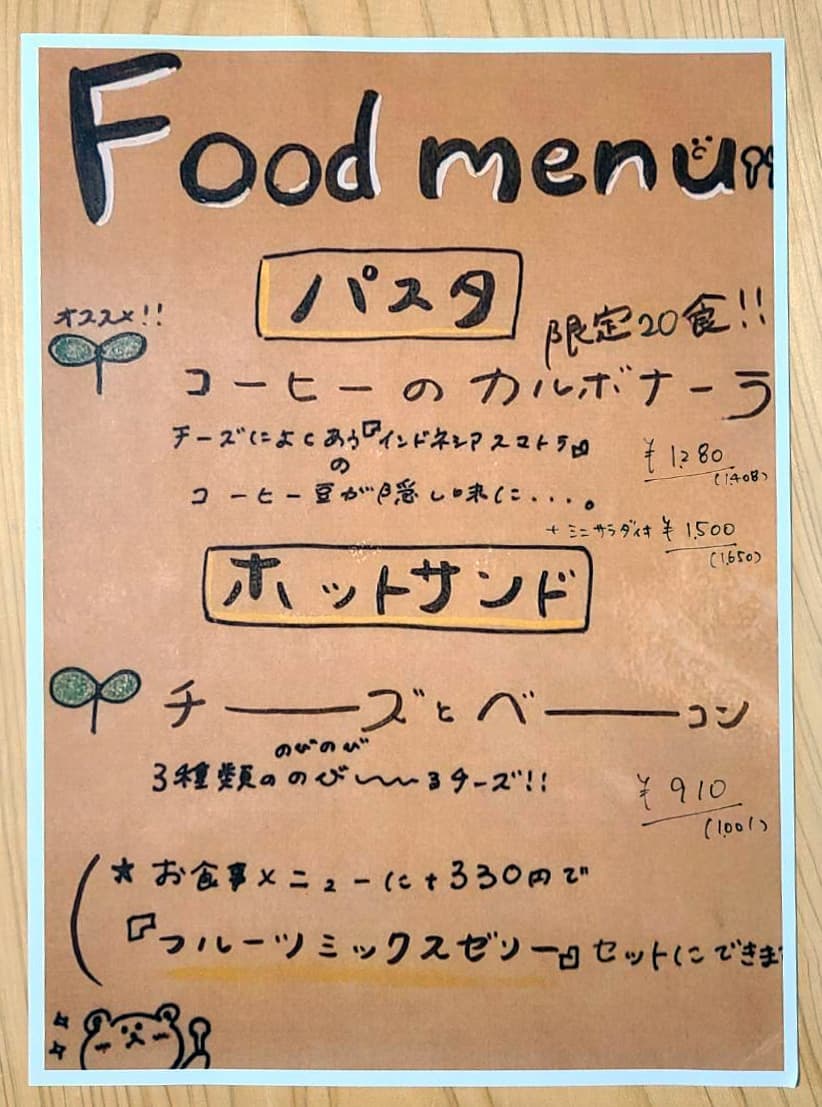 Food menu
パスタ
オススメ!!
限定20食!!
コーヒーのカルボナーラ
チーズによくあう『インドネシアスマトラ』
の
コーヒー豆が隠し味に・・・。
¥1,280
(1,408)
+ミニサラダ付き ¥1,500
(1,650)
ホットサンド
チーズとベーコン
のびのび
3種類ののび〜〜るチーズ!!
¥910
(1,001)
★お食事メニューに+330円で
『フルーツミックスゼリー』セットにできま